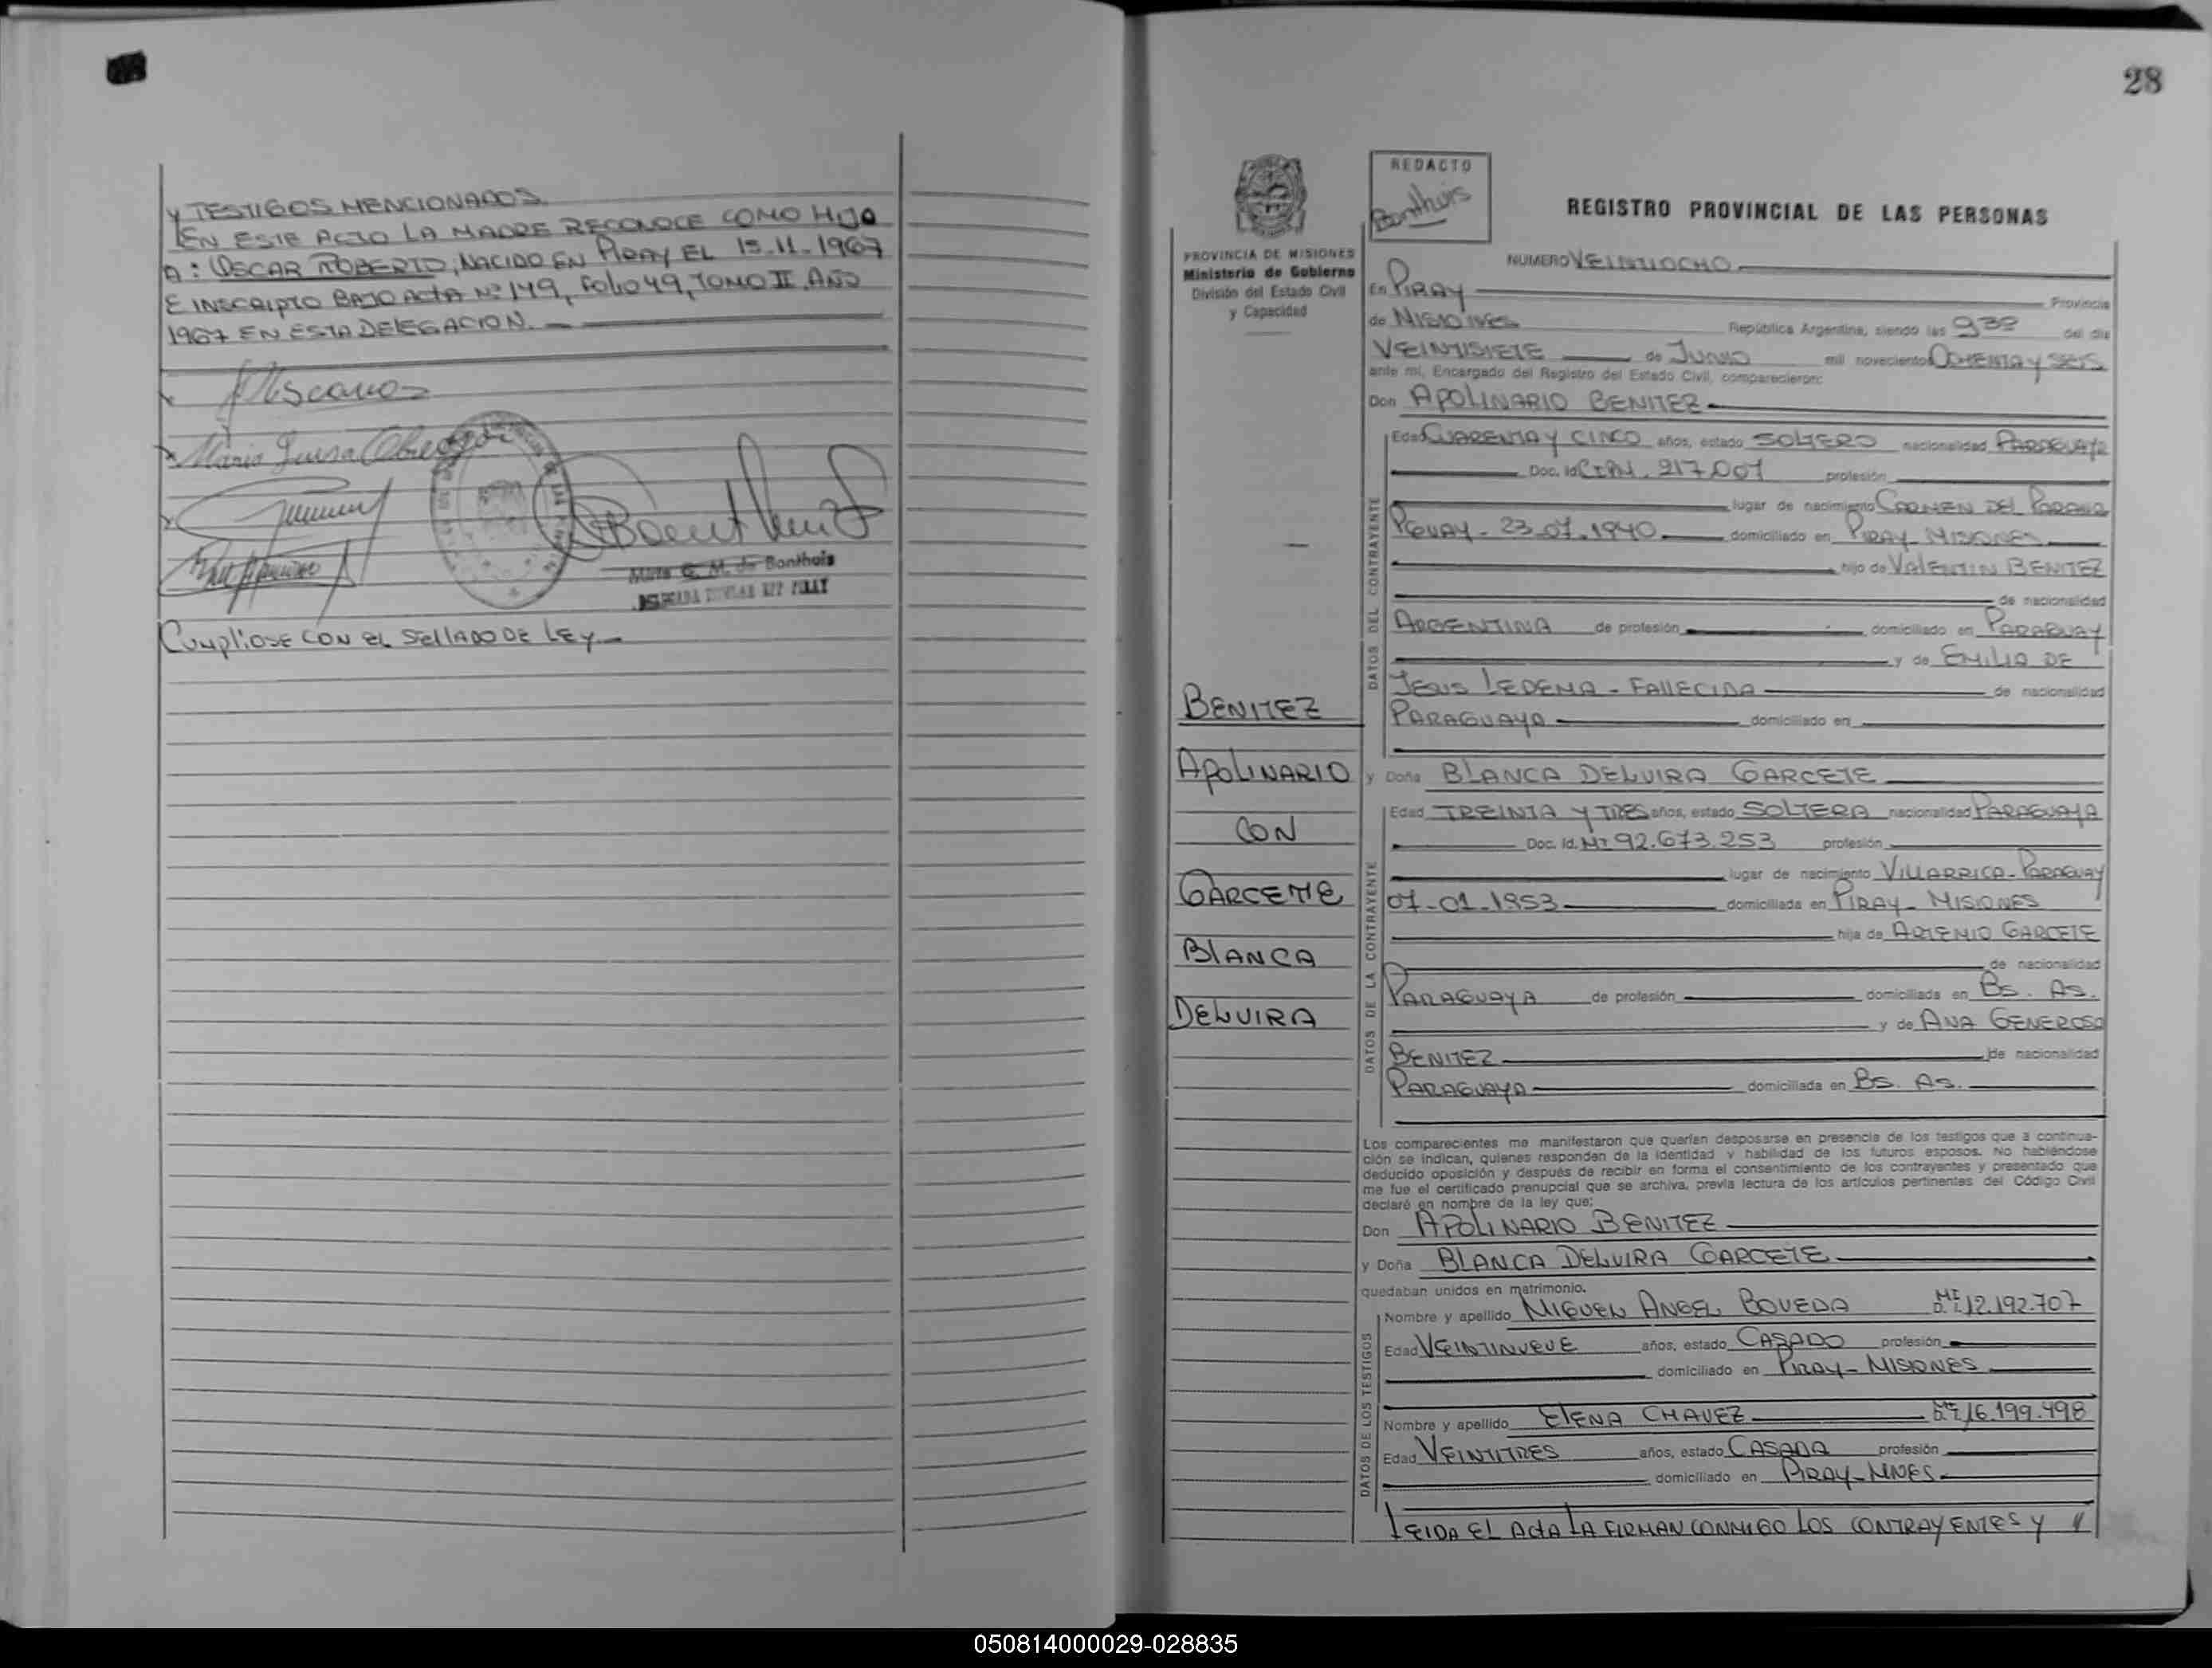 Y TESTIGOS MENCIONADOS
EN ESTE ACTO LA MADRE RECONOCE COMO HIJO
A: OSCAR ROBERTO, NACIDO EN PIRAY EL 15.11.1967
E INSCRIPTO BAJO ACTA Nº 149, FOLIO 49, TOMO II AÑO
1967 EN ESTA DELEGACION.
Maria Luisa
Mirta G. M. de Bonthuis
CUMPLIOSE CON EL SELLADO DE LEY
28
PROVINCIA DE MISIONES
Ministerio de Gobierno
División del Estado Civil
y Capacidad
REDACTO
Bonthuis
REGISTRO PROVINCIAL DE LAS PERSONAS
NUMERO VEINTIOCHO
En PIRAY Provincia
de MISIONES República Argentina, siendo las 9 30 del día
VEINTISIETE de JUNIO mil novecientos OCHENTA Y SEIS
ante mí, Encargado del Registro del Estado Civil, comparecieron:
Don APOLINARIO BENITEZ
DATOS DEL CONTRAYENTE
Edad CUARENTA Y CINCO años, estado SOLTERO nacionalidad PARAGUAYA
Doc. Id. CIPM. 217.001 profesión
lugar de nacimiento CARMEN DEL PARANA
PGUAY - 23.07.1940 domiciliado en PIRAY MISIONES
hijo de VALENTIN BENITEZ
de nacionalidad
ARGENTINA de profesión domiciliado en PARAGUAY
y de EMILIA DE
JESUS LEDEMA - FALLECIDA de nacionalidad
PARAGUAYA domiciliado en
BENITEZ
APOLINARIO
CON
GARCETE
BLANCA
DELVIRA
y Doña BLANCA DELVIRA GARCETE
DATOS DE LA CONTRAYENTE
Edad TREINTA Y TRES años, estado SOLTERA nacionalidad PARAGUAYA
Doc. Id. Nº 92.673.253 profesión
lugar de nacimiento VILLARRICA - PARAGUAY
07-01-1953 domiciliada en PIRAY - MISIONES
hija de ARTENIO GARCETE
de nacionalidad
PARAGUAYA de profesión domiciliada en BS. AS.
y de ANA GENEROSA
BENITEZ de nacionalidad
PARAGUAYA domiciliada en BS. AS.
Los comparecientes me manifestaron que querían desposarse en presencia de los testigos que a continua-
ción se indican, quienes responden de la identidad y habilidad de los futuros esposos. No habiéndose
deducido oposición y después de recibir en forma el consentimiento de los contrayentes y presentado que
me fue el certificado prenupcial que se archiva, previa lectura de los artículos pertinentes del Código Civil
declaré en nombre de la ley que:
Don APOLINARIO BENITEZ
y Doña BLANCA DELVIRA GARCETE
quedaban unidos en matrimonio.
DATOS DE LOS TESTIGOS
Nombre y apellido MIGUEL ANGEL BOVEDA 12.192.707
Edad VEINTINUEVE años, estado CASADO profesión
domiciliado en PIRAY - MISIONES
Nombre y apellido ELENA CHAVEZ 16.199.498
Edad VEINTITRES años, estado CASADA profesión
domiciliado en PIRAY - MNES
LEIDA EL ACTA LA FIRMAN CONMIGO LOS CONTRAYENTES Y //
050814000029-028835